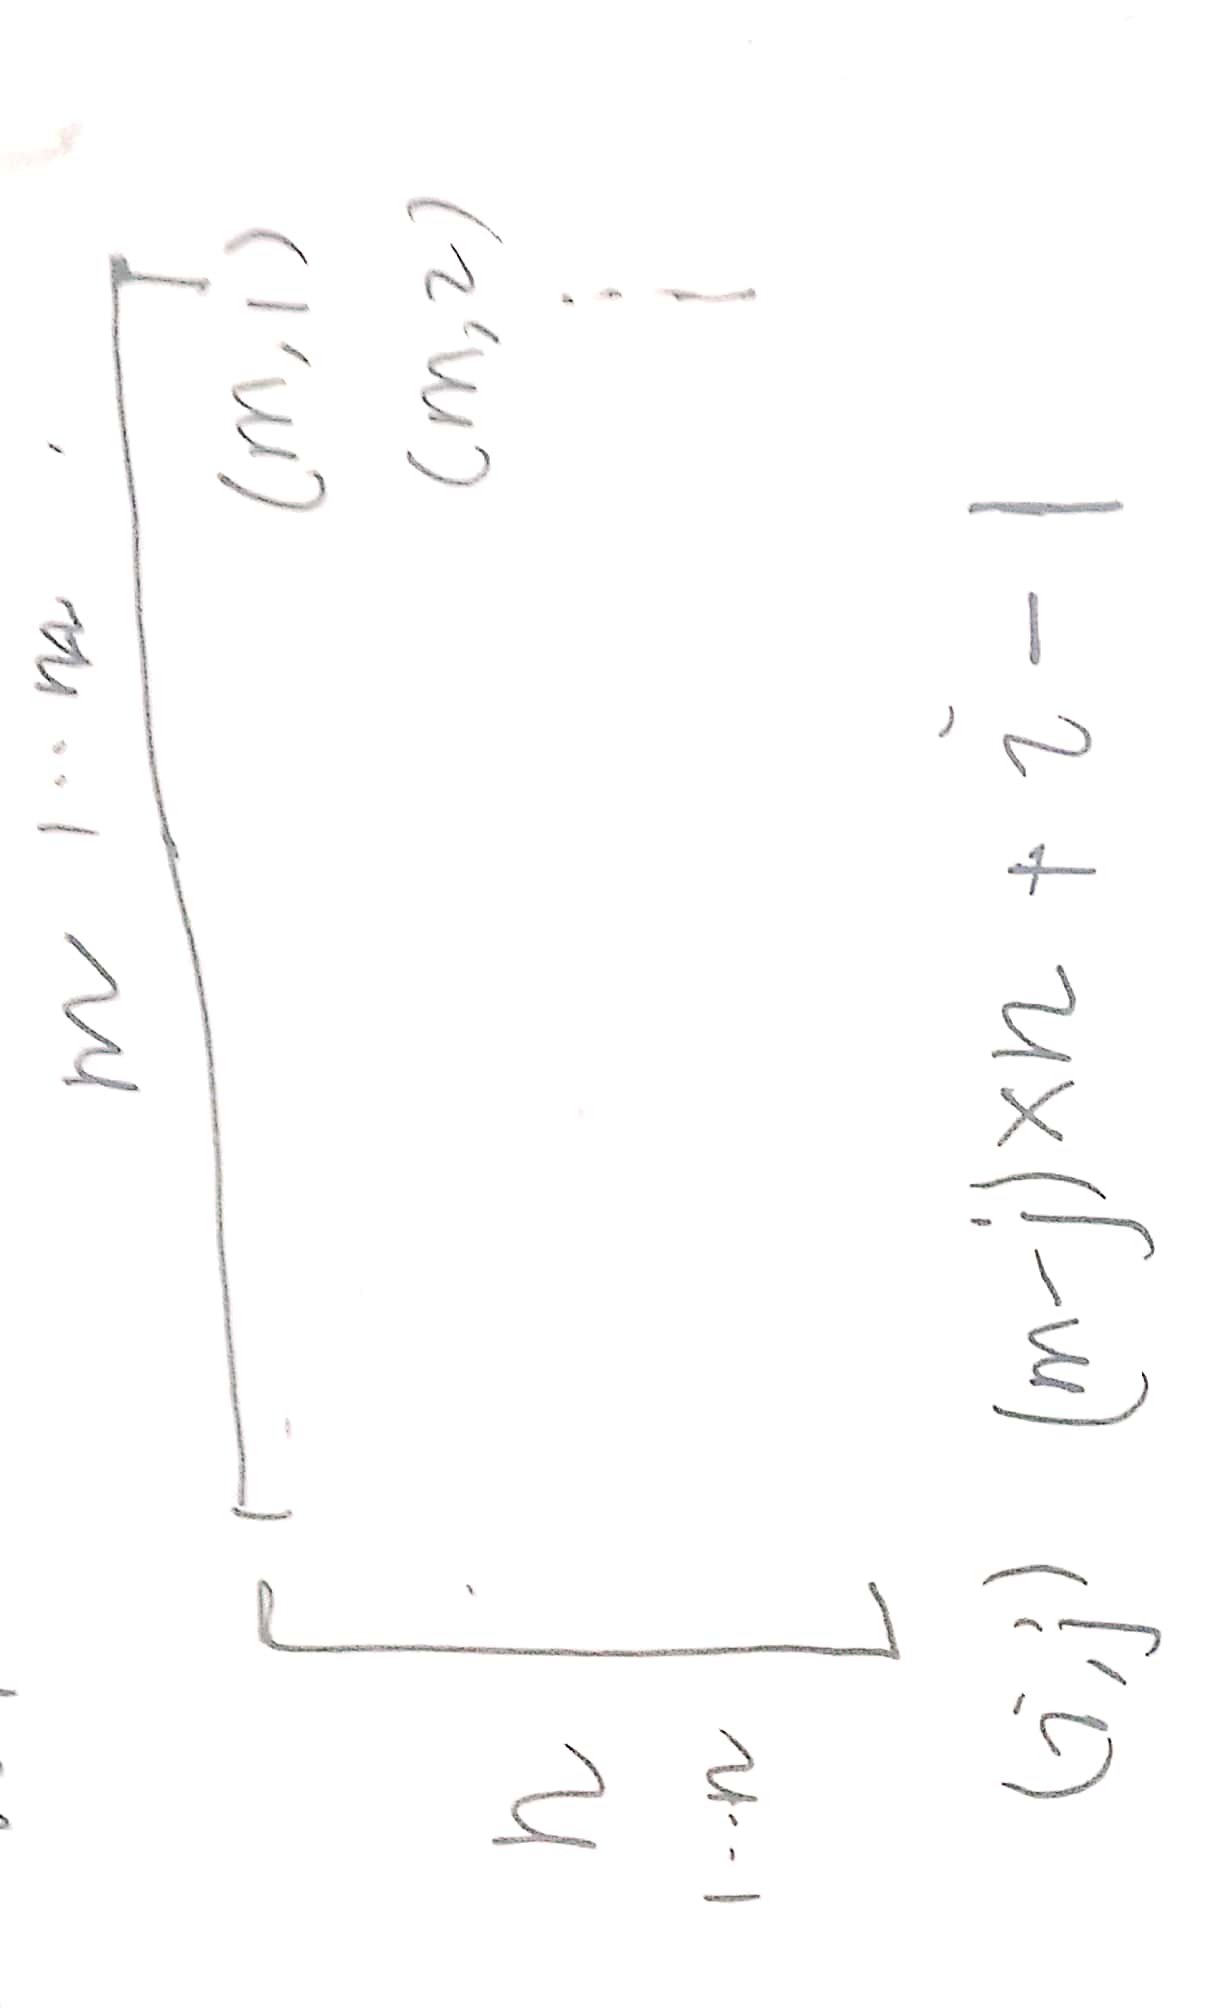 m 1..m
(m,1)
(m,2)
n
1--n
(i,j) (m-j)×n + i - 1